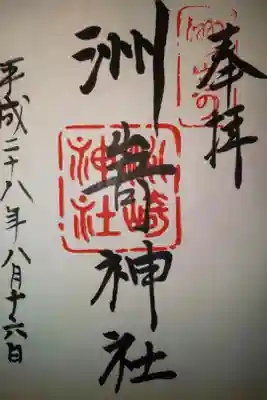 奉拝
洲嵜神社
洲崎神社
平成二十八年八月十六日